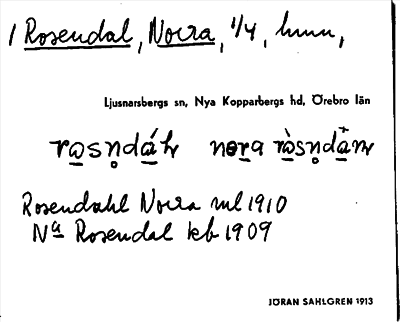 1 Rosendal, Norra, 1/4, hmn,
Ljusnarsbergs sn, Nya Kopparbergs hd, Örebro län
nora
Rosendahl Norra ml 1910
Na Rosendal kb 1909
JÖRAN SAHLGREN 1913